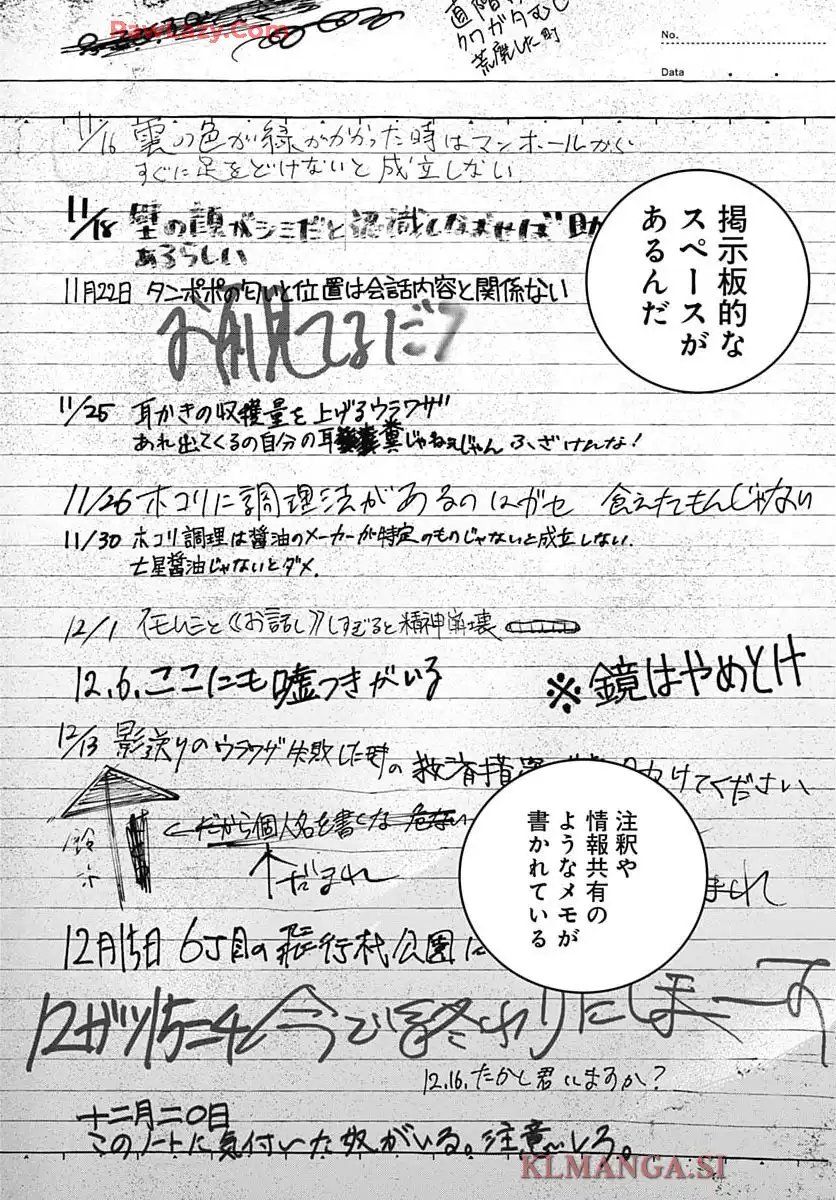 RawLazy.Com
クワガタむし
荒廃した町
No.
Data
11/16 雲の色が緑がかかった時はマンホールから
すぐに足をどけないと成立しない
掲示板的な
スペースが
あるんだ
11/18 壁の顔がシミだと認識しなおせば助
あるらしい
11月22日 タンポポの匂いと位置は会話内容と関係ない
お前見てるだろ
11/25 耳かきの収穫量を上げるウラワザ
あれ出てくるの自分の耳糞じゃねぇじゃん ふざけんな!
11/26 ホコリに調理法があるのはガセ 食えたもんじゃない
11/30 ホコリ調理は醤油のメーカーが特定のものじゃないと成立しない.
七星醤油じゃないとダメ.
12/1 イモムシと《お話し》しすぎると精神崩壊
12.6.ここにも嘘つきがいる
※鏡はやめとけ
12/13 影送りのウラワザ失敗した時の救済措置 助けてください
鈴木
←だから個人名を書くな 危ない
↑だまれ
まれ
注釈や
情報共有の
ようなメモが
書かれている
12月15日 6丁目の飛行機公園に
12ガツ15ニチ 今で終わりにしまーす
12.16.たかと君いますか?
十二月二〇日
このノートに気付いた奴がいる。注意しろ。
KLMANGA.SI